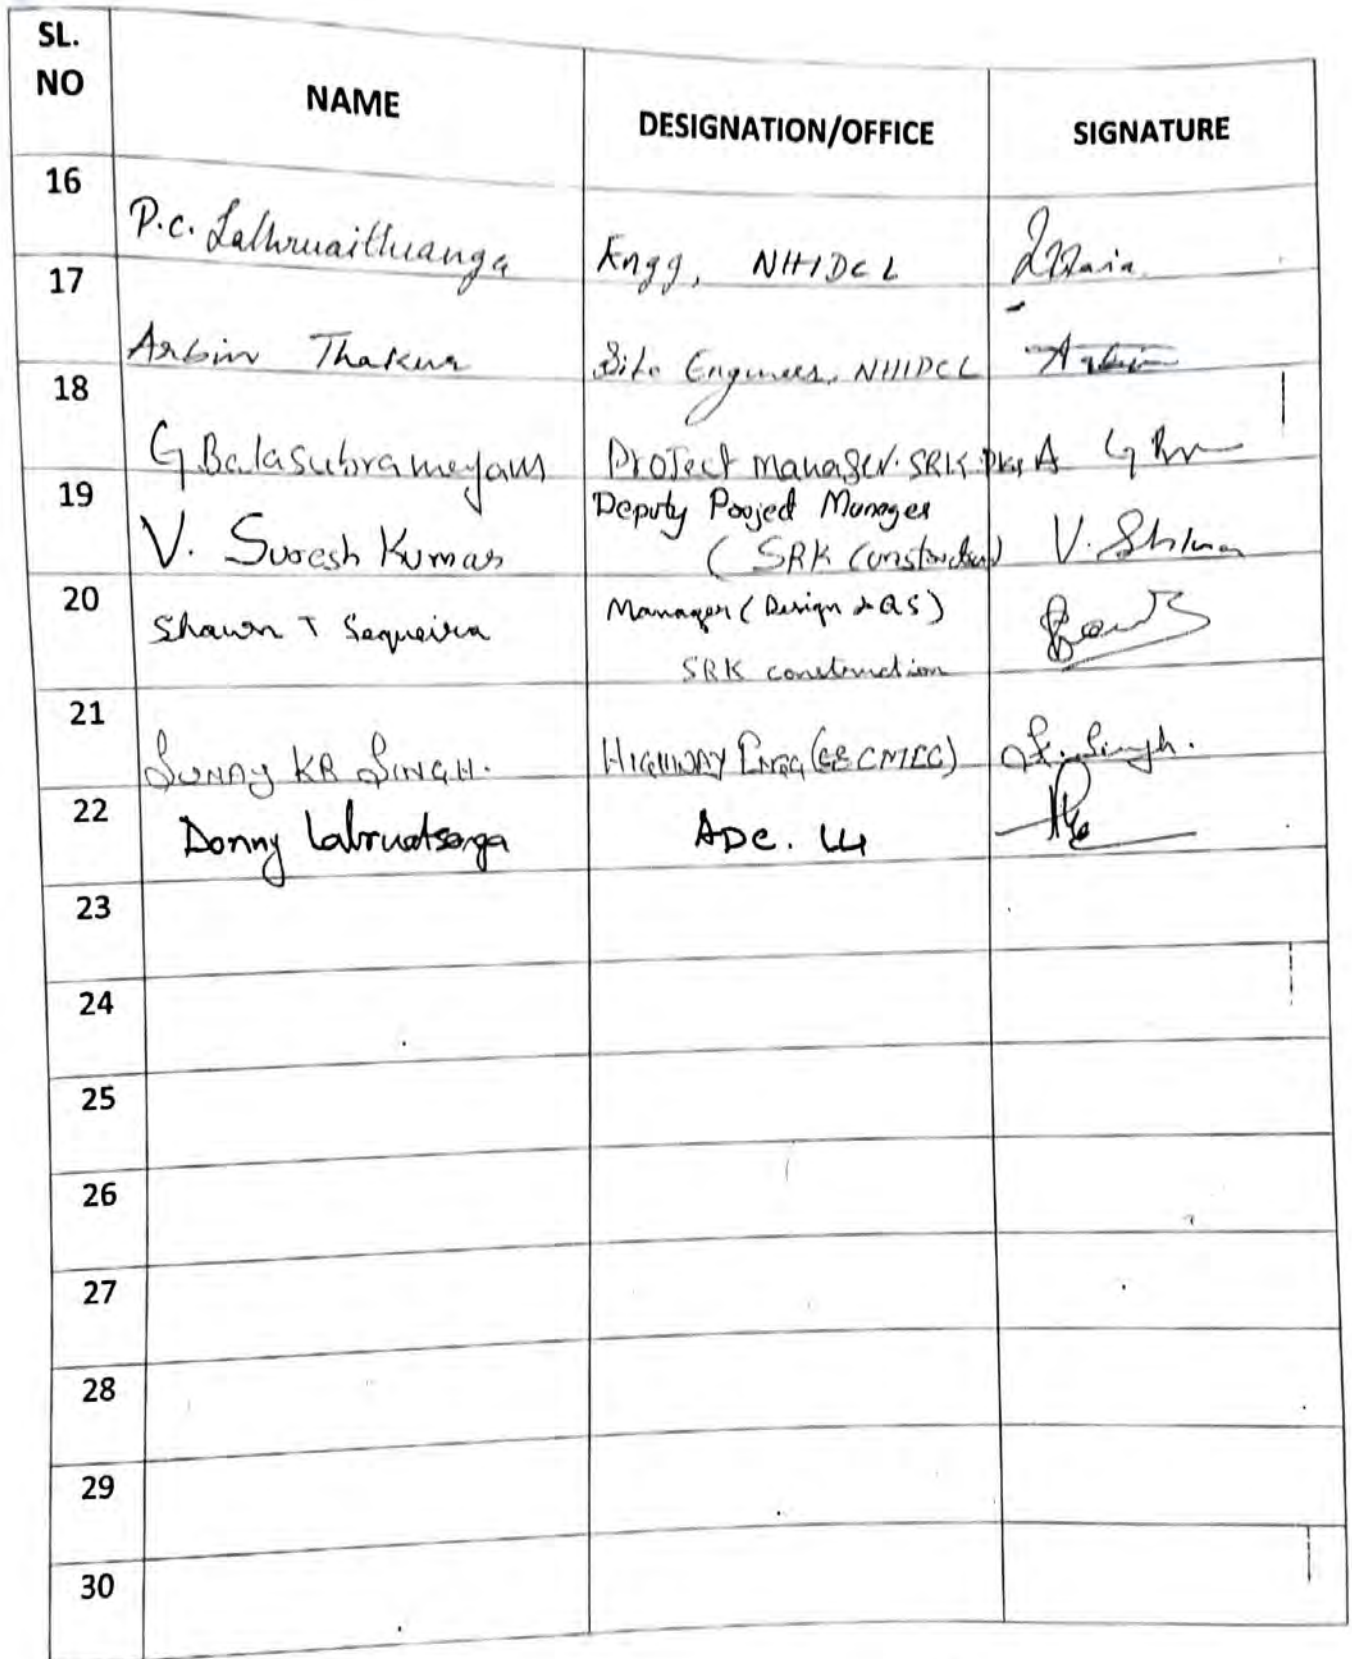 SL. NO NAME DESIGNATION/OFFICE SIGNATURE
16 P.C. Lalhruaitluanga Engg, NHIDCL
17 Arbin Thakur Site Engineer, NHIDCL Arbin
18 G Balasubramanyam Project manager. SRK Pkg A
19 V. Suresh Kumar Deputy Project Manager
(SRK Construction)
20 Shawn T Sequeira Manager (Design & QS)
SRK construction
21 SUNNY KR SINGH. HIGHWAY ENGG S. Singh.
22 Donny Lalruatsanga ADC.
23
24
25
26
27
28
29
30